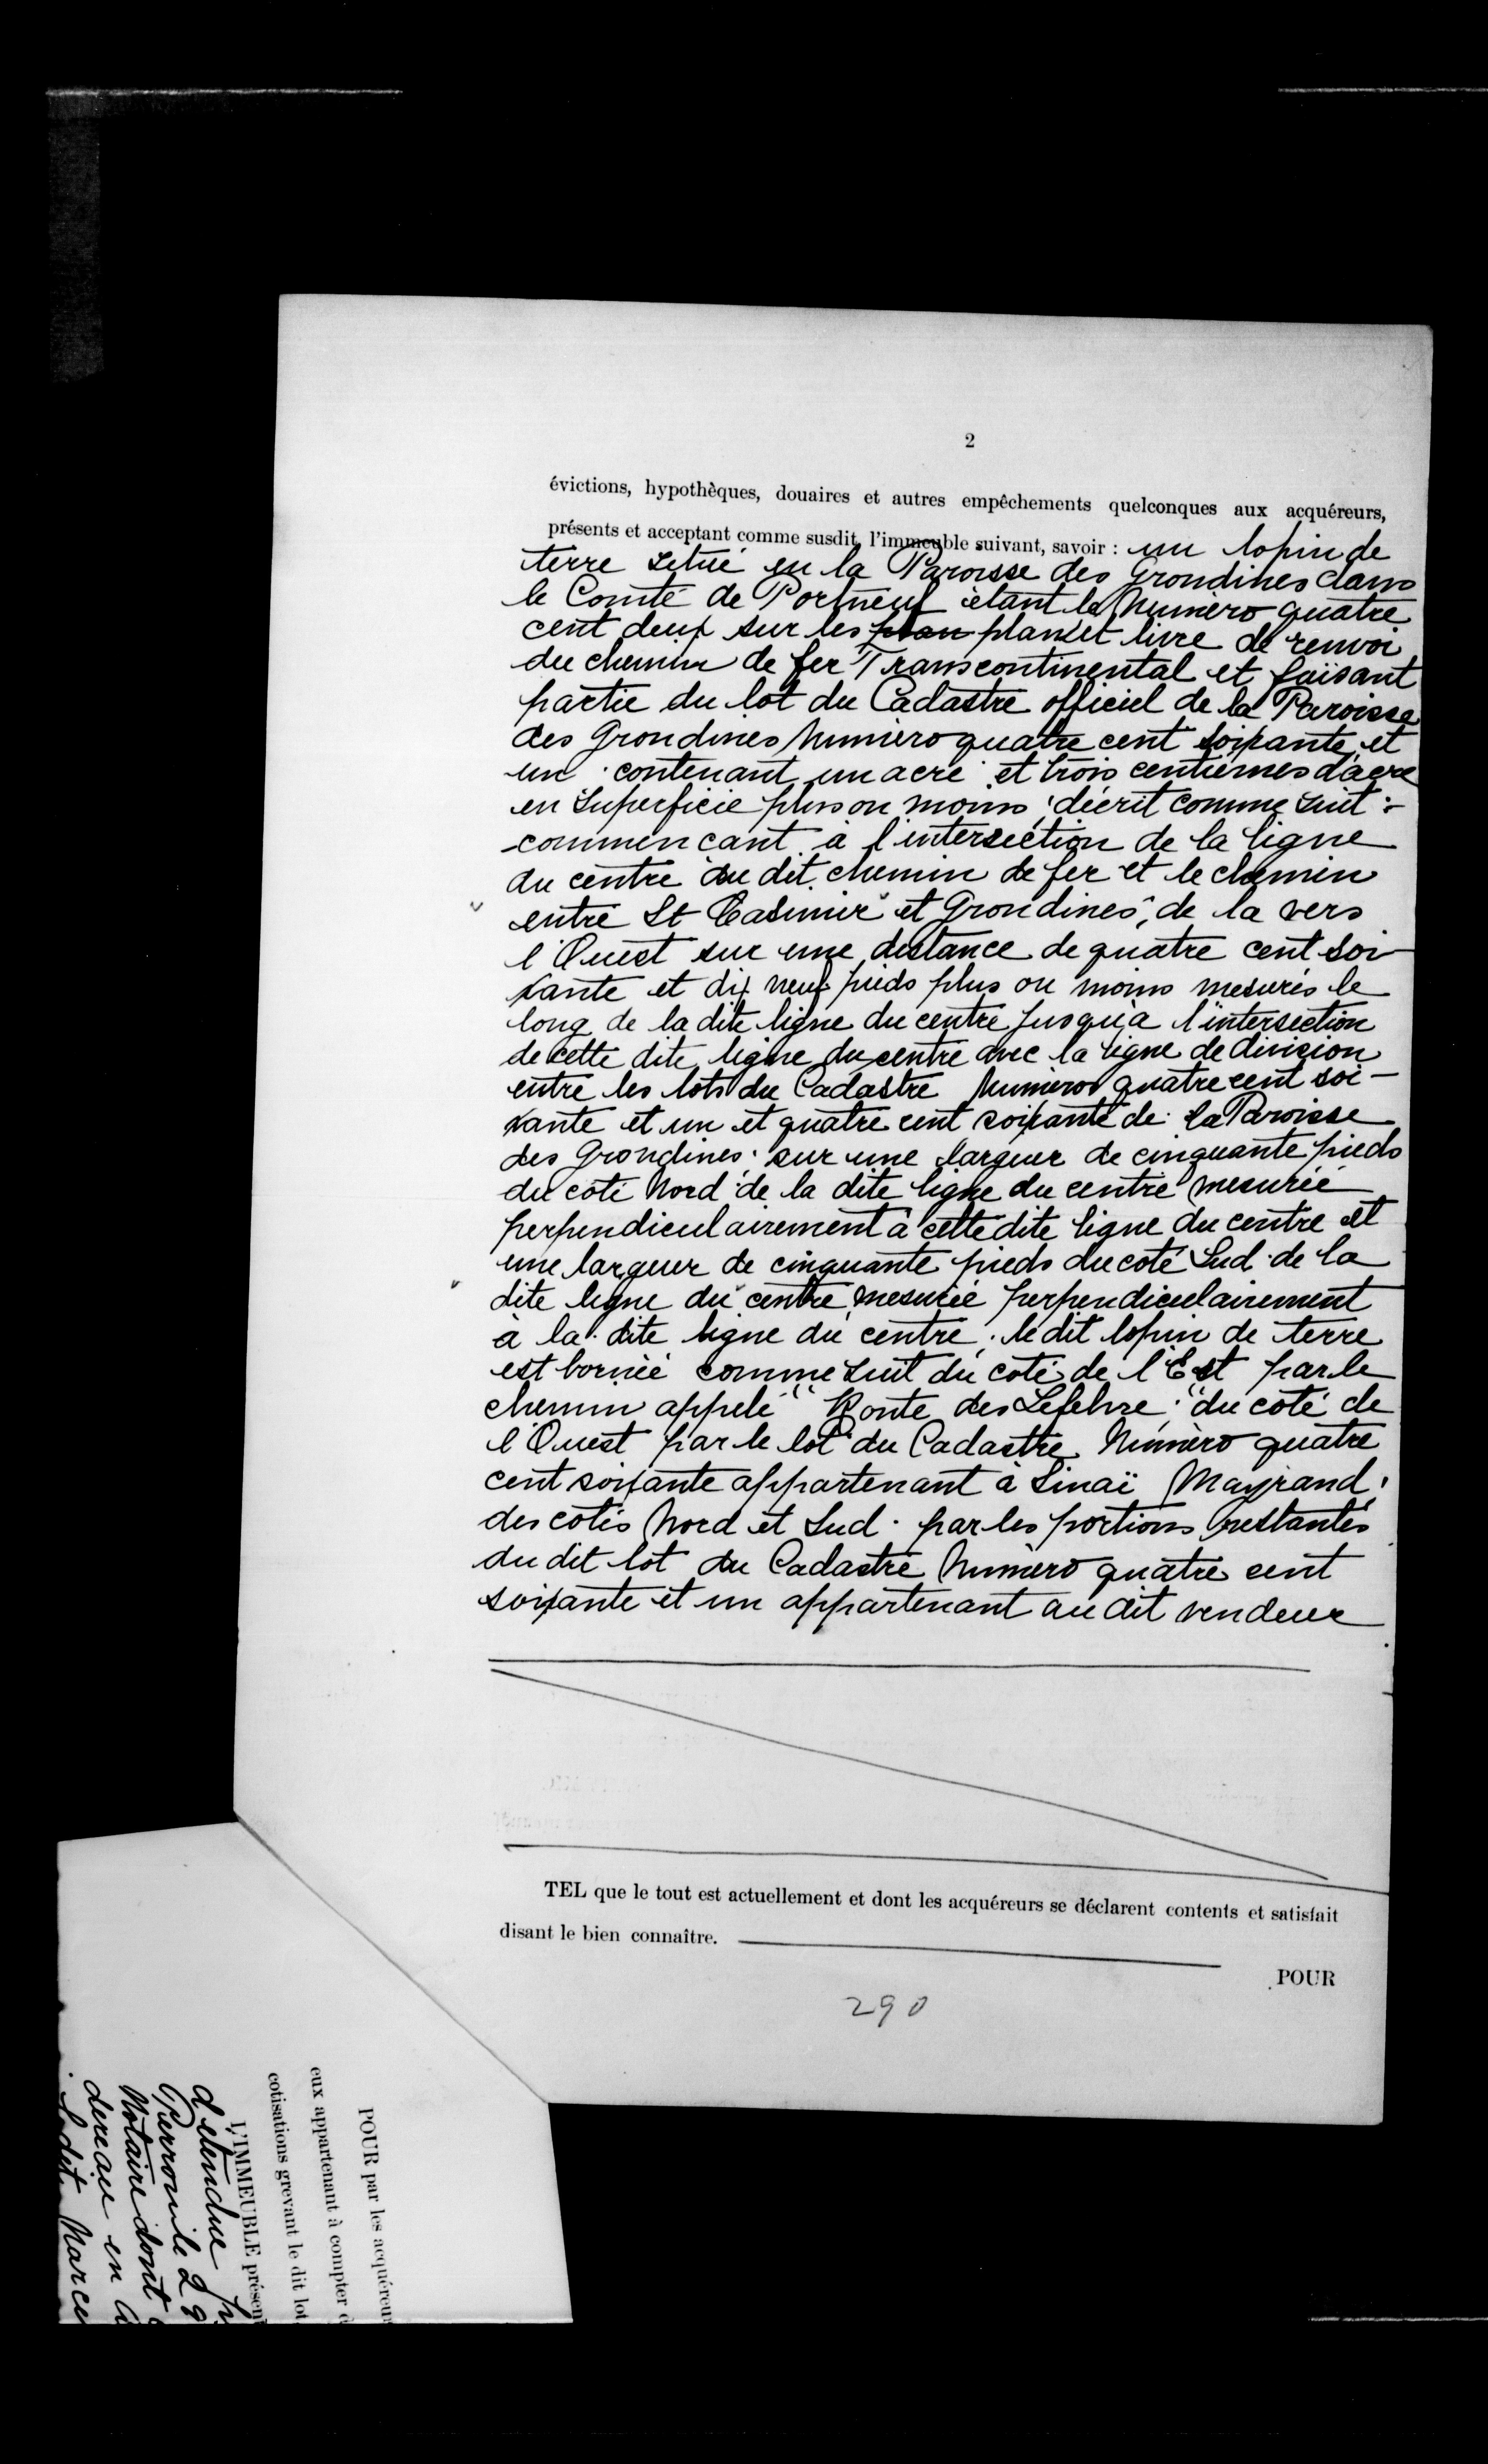 2
évictions, hypothèques, douaires et autres empêchements quelconques aux acquéreurs,
présents et acceptant comme susdit, l'immeuble suivant, savoir : un lopin de
terre situé en la Paroisse des Grondines dans
le Comté de Portneuf étant le Numéro quatre
cent deux sur les plan plan et livre de renvoi
du chemin de fer Transcontinental et faisant
partie du lot du Cadastre officiel de la Paroisse
des Grondines Numéro quatre cent soixante et
un contenant un acre et trois centièmes d'acre
en Superficie plus ou moins, décrit comme suit :-
commencant à l'intersection de la ligne
du centre du dit chemin de fer et le chemin
entre St Casimir et Grondines, de la vers
l'Ouest sur une distance de quatre cent soi-
xante et dix neuf pieds plus ou moins mesurés le
long de la dite ligne du centre jusqu'à l'intersection
de cette dite ligne du centre avec la ligne de division
entre les lots du Cadastre Numéros quatre cent soi-
xante et un et quatre cent soixante de la Paroisse
des Grondines; sur une larguer de cinquante pieds
du coté Nord de la dite ligne du centre mesurée
perpendiculairement à cette dite ligne du centre et
une larguer de cinquante pieds du coté Sud de la
dite ligne du centre mesurée perpendiculairement
à la dite ligne du centre; le dit lopin de terre
est bornée comme suit du coté de l'Est par le
chemin appelé "Route des Lefebvre;" du coté de
l'Ouest par le lot du Cadastre Numéro quatre
cent soixante appartenant à Sinaï Mayrand;
des cotés Nord et Sud par les portions restantes
du dit lot du Cadastre Numéro quatre cent
soixante et un appartenant au dit vendeur
TEL que le tout est actuellement et dont les acquéreurs se déclarent contents et satisfait
disant le bien connaître.
POUR
290
POUR par les acquéreur
eux appartenant à compter d
cotisations grevant le dit lot
L'IMMEUBLE présen
d'étendue
Pierron le 29
Notaire dont
dereau en
Ledit Marce